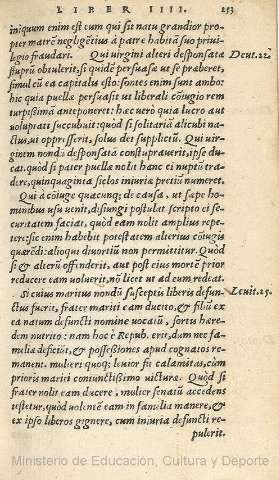 LIBER IIII. 253
iniquum enim est cum qui sit natu grandior pro-
pter matrē negligētius à patre habitā suo priui-
legio fraudari. Qui virgini alteri desponsatæ Deut. 22.
stuprū obtulerit, si quidē persuasæ ut se præberet,
simul cū ea capitalis esto: fontes enim sunt ambo:
hic quia puellæ persuasit ut liberali cōiugio rem
turpissimā anteponeret: hæc uero quia lucro aut
uoluptati succubuit: quòd si solitariā alicubi na-
ctus, ut oppresserit, solus det supplicīū. Qui uir-
ginem nondū desponsatā constuprauerit, ipse du-
cat. quòd si pater puellæ nolit hanc ei nuptū tra-
dere, quinquaginta siclos iniuriæ preciū numeret.
Qui à cōiuge quacunq; de causa, ut sæpe ho-
minibus usu uenit, disiungi postulat scripto ei se-
curitatem faciat, quòd eam nolit amplius repe-
tere: sic enim habebit potestatem alterius cōiugis
quærēdi: alioqui diuortiū non permittitur. Quòd
si & alterū offenderit, aut post eius mortē prior
reducere eam uoluerit, nō licet ut ad eum redeat.
Si cuius maritus nondū susceptis liberis defun- Leuit. 25.
ctus fuerit, frater mariti eam ducito, & filiū ex
ea natum defuncti nomine uocatū, sortis hære-
dem nutrito: nam hoc è Repub. erit, dum nec fa-
milia deficiūt, & possessiones apud cognatos re-
manent. mulieri quoq; leuior fit calamitas, cum
prioris mariti coniunctissimo uicturæ. Quòd si
frater nolit eam ducere, mulier senatū accedens
testetur, quòd uolentē eam in familia manere, &
ex ipso liberos gignere, cum iniuria defuncti re-
pulerit.
Ministerio de Educación, Cultura y Deporte